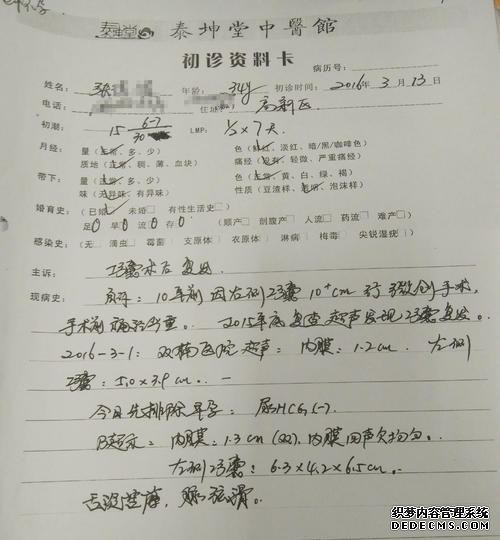 泰坤堂 泰坤堂中醫館
初诊资料卡
病历号：
姓名：张 年龄：34y 初诊时间：2016年3月13日
电话： 住址： 高新区
初潮：15 6-7/30 LMP： 1/3×7天.
月经： 量（正常、多、少） 色（鲜红、淡红、暗/黑/咖啡色）
质地（正常、稠、薄、血块） 痛经（没有、轻微、严重痛经）
带下： 量（正常、多、少） 色（正常、黄、白、绿、褐）
味（无异味、有异味） 性质（豆渣样、透明、泡沫样）
婚育史：（已婚 未婚□ 有性生活史□）
足0早0流0存0 （顺产□ 剖腹产□ 人流□ 药流□ 难产□）
感染史：（无□ 滴虫□ 霉菌□ 支原体□ 衣原体□ 淋病□ 梅毒□ 尖锐湿疣□）
主诉： 巧囊术后复发.
现病史： 自诉：10年前因左侧巧囊10⁺cm行微创手术，
手术前痛经严重。 2015年底复查超声发现巧囊复发。
2016-3-1：双楠医院超声：内膜：1.2cm. 左侧
巧囊：5.0×3.9cm.
今日先排除早孕：尿HCG(-).
B超示：内膜：1.3cm，内膜回声欠均匀。
左侧巧囊：6.3×4.2×6.5cm.
舌淡苔薄，脉弦滑。
织梦内容管理系统
DEDECMS.COM